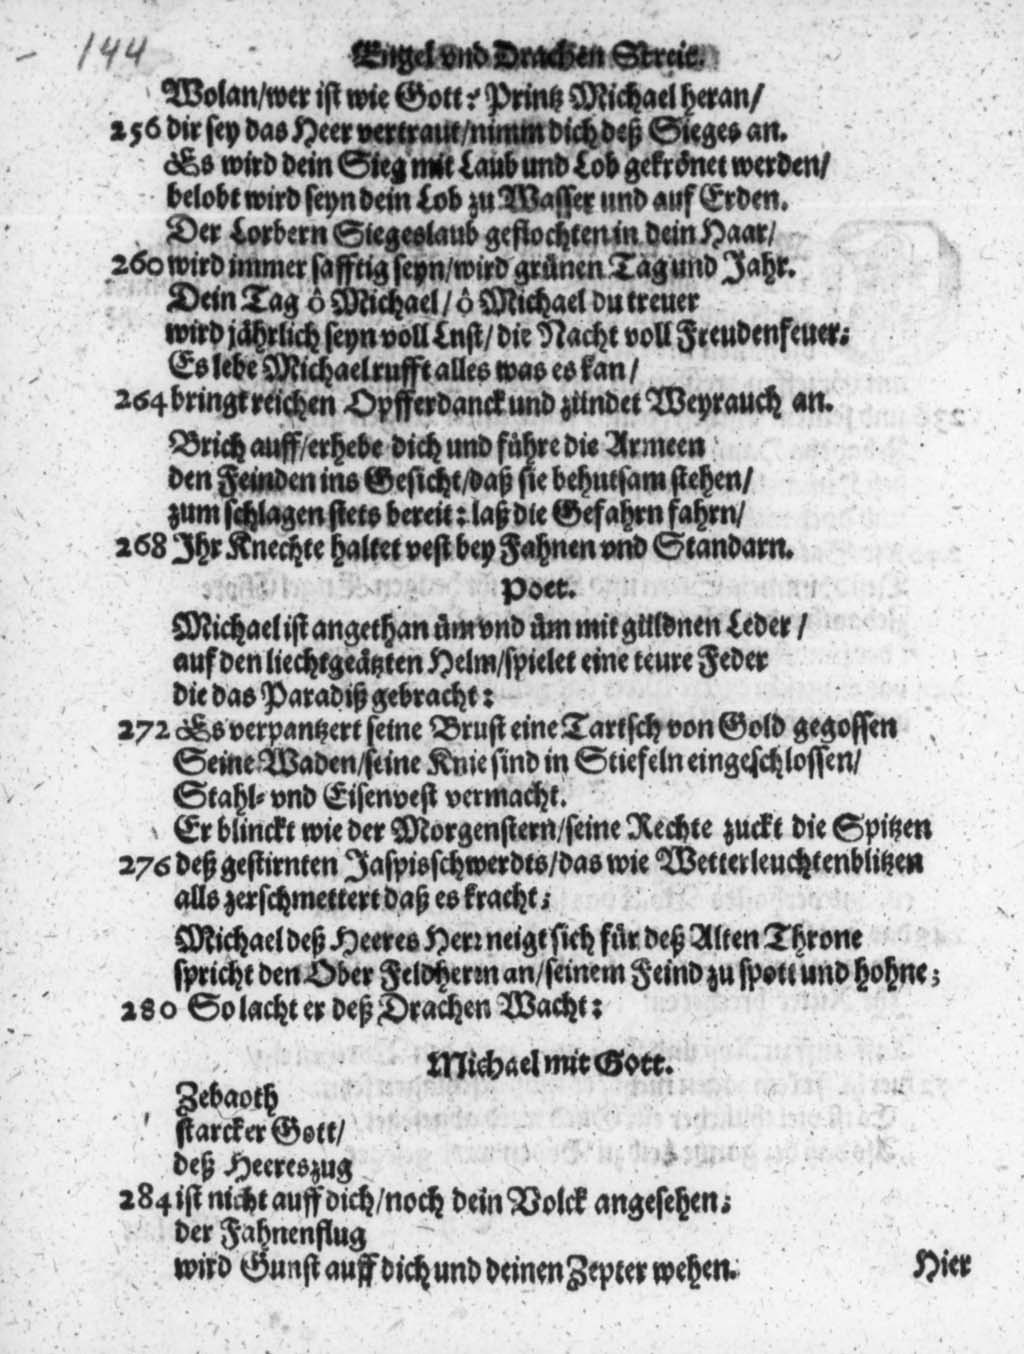 144
Engel vnd Drachen Streit.
Wolan/wer ist wie Gott? Printz Michael heran/
256 dir sey das Heer vertraut/nimm dich deß Sieges an.
Es wird dein Sieg mit Laub und Lob gekrönet werden/
belobt wird seyn dein Lob zu Wasser und auf Erden.
Der Lorbern Siegeslaub geflochten in dein Haar/
260 wird immer safftig seyn/wird grünen Tag und Jahr.
Dein Tag ô Michael/ ô Michael du treuer
wird jährlich seyn voll Lust/ die Nacht voll Freudenfeuer:
Es lebe Michael rufft alles was es kan/
264 bringt reichen Opfferdanck und zündet Weyrauch an.
Brich auff/erhebe dich und führe die Armeen
den Feinden ins Gesicht/daß sie behutsam stehen/
zum schlagen stets bereit: laß die Gefahrn fahrn/
268 Ihr Knechte haltet vest bey Fahnen vnd Standarn.
Poet.
Michael ist angethan üm vnd üm mit güldnen Leder /
auf den liechtgeätzten Helm/spielet eine teure Feder
die das Paradiß gebracht:
272 Es verpantzert seine Brust eine Tartsch von Gold gegossen
Seine Waden/seine Knie sind in Stiefeln eingeschlossen/
Stahl- vnd Eisenvest vermacht.
Er blinckt wie der Morgenstern/seine Rechte zuckt die Spitzen
276 deß gestirnten Jaspisschwerdts/das wie Wetterleuchtenblitzen
alls zerschmettert daß es kracht;
Michael deß Heeres Herr neigt sich für deß Alten Throne
spricht den Ober Feldherrn an/seinem Feind zu spott und hohne;
280 So lacht er deß Drachen Wacht:
Michael mit Gott.
Zebaoth
starcker Gott/
deß Heereszug
284 ist nicht auff dich/noch dein Volck angesehen;
der Fahnenflug
wird Gunst auff dich und deinen Zepter wehen.
Hier